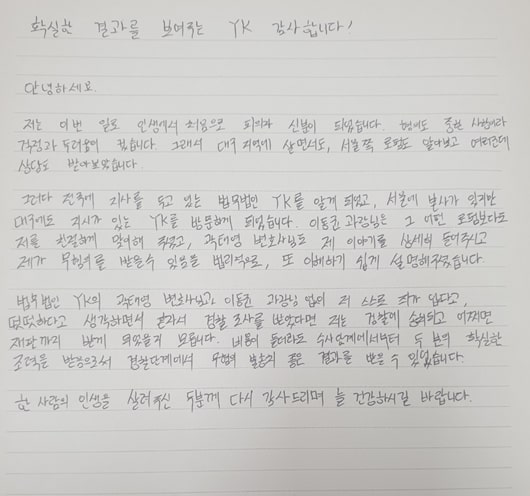 확실한 결과를 보여주는 YK 감사합니다!
안녕하세요.
저는 이번 일로 인생에서 처음으로 피의자 신분이 되었습니다. 혐의도 중한 사항이라
걱정과 두려움이 컸습니다. 그래서 대구 지역에 살면서도, 서울쪽 로펌도 알아보고 여러군데
상담도 받아보았습니다.
그러다 전국에 지사를 두고 있는 법무법인 YK를 알게 되었고, 서울에 본사가 있지만
대구에도 지사가 있는 YK를 방문하게 되었습니다. 이동훈 과장님은 그 어떤 로펌보다도
저를 친절하게 맞이해 주었고, 곽태영 변호사님도 제 이야기를 상세히 들어주시고
제가 무혐의를 받을수 있음을 법리적으로, 또 이해하기 쉽게 설명해주셨습니다.
법무법인 YK의 곽태영 변호사님과 이동훈 과장님 없이 저 스스로 죄가 없다고,
떳떳하다고 생각하면서 혼자서 경찰 조사를 받았다면 저는 검찰에 송치되고 어쩌면
재판까지 받게 되었을지 모릅니다. 비용이 들더라도 수사단계에서부터 두 분의 확실한
조력을 받음으로써 경찰단계에서 무혐의 불송치 좋은 결과를 받을 수 있었습니다.
한 사람의 인생을 살려주신 두분께 다시 감사드리며 늘 건강하시길 바랍니다.